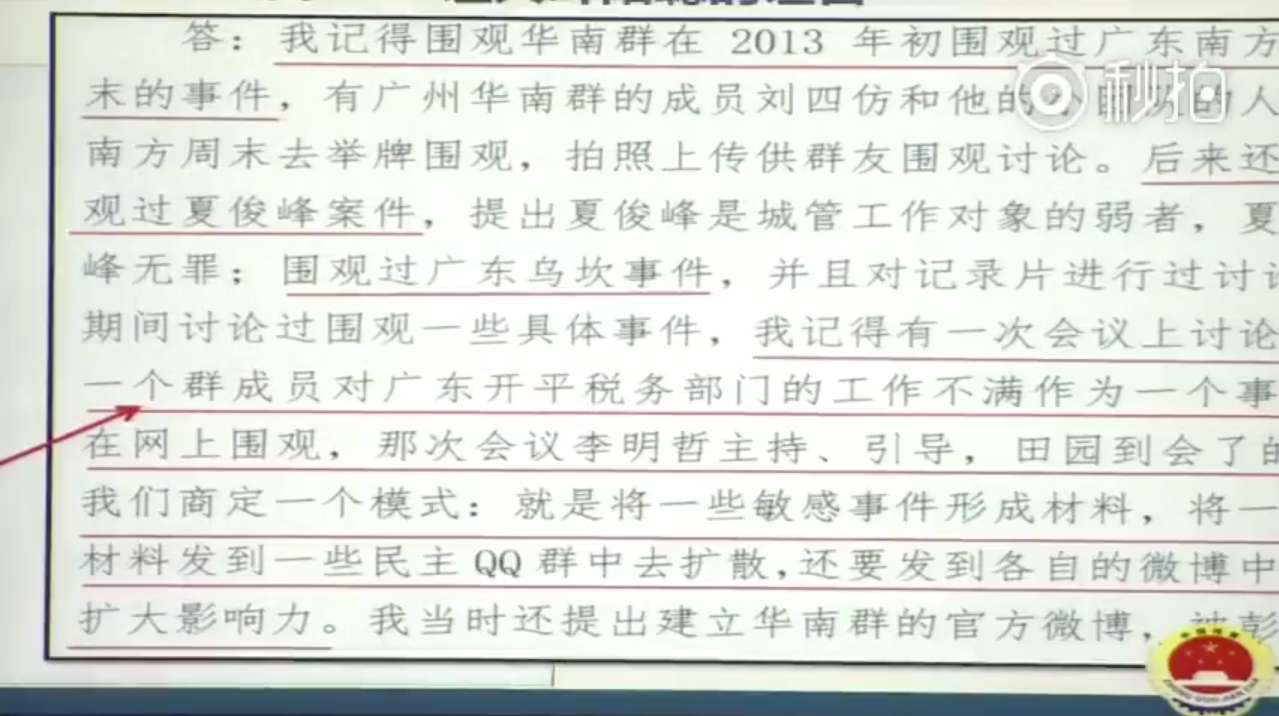 答：我记得围观华南群在 2013 年初围观过广东南方
末的事件，有广州华南群的成员刘四仿和他的小团队的人
秒拍
南方周末去举牌围观，拍照上传供群友围观讨论。后来还
观过夏俊峰案件，提出夏俊峰是城管工作对象的弱者，夏
峰无罪；围观过广东乌坎事件，并且对记录片进行过讨论
期间讨论过围观一些具体事件，我记得有一次会议上讨论
一个群成员对广东开平税务部门的工作不满作为一个事
在网上围观，那次会议李明哲主持、引导，田园到会了的
我们商定一个模式：就是将一些敏感事件形成材料，将一
材料发到一些民主 QQ 群中去扩散，还要发到各自的微博中
扩大影响力。我当时还提出建立华南群的官方微博，被彭